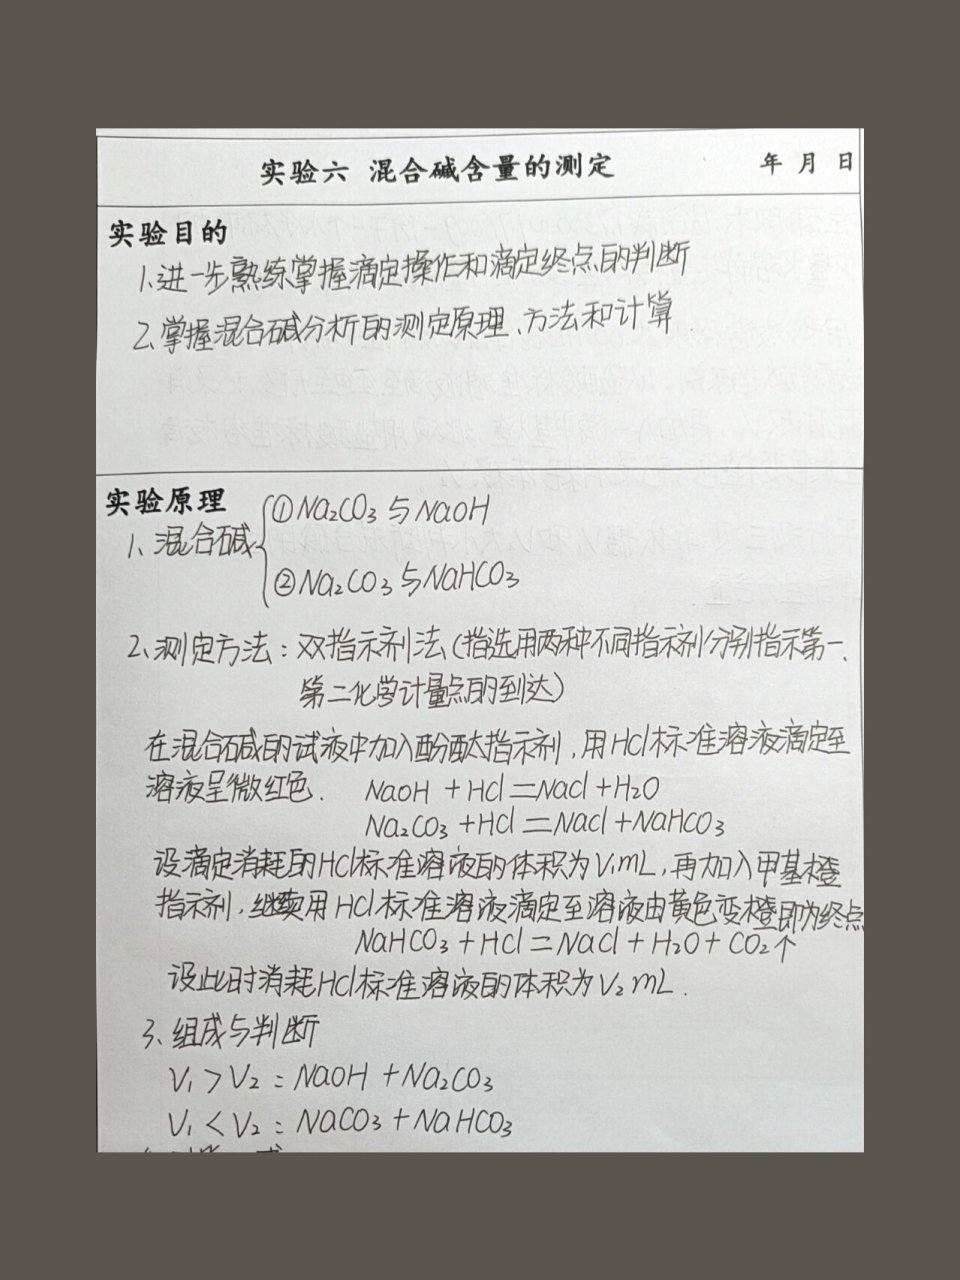 实验六 混合碱含量的测定 年 月 日
实验目的
1.进一步熟练掌握滴定操作和滴定终点的判断
2.掌握混合碱分析的测定原理、方法和计算.
实验原理
1、混合碱 ①Na₂CO₃与NaOH
②Na₂CO₃与NaHCO₃
2、测定方法：双指示剂法（指选用两种不同指示剂分别指示第一、
第二化学计量点的到达）
在混合碱的试液中加入酚酞指示剂，用HCl标准溶液滴定至
溶液呈微红色. NaOH+HCl=NaCl+H₂O
Na₂CO₃+HCl=NaCl+NaHCO₃
设滴定消耗的HCl标准溶液的体积为V₁mL，再加入甲基橙
指示剂，继续用HCl标准溶液滴定至溶液由黄色变橙即为终点
NaHCO₃+HCl=NaCl+H₂O+CO₂↑
设此时消耗HCl标准溶液的体积为V₂mL.
3、组成与判断
V₁>V₂：NaOH+Na₂CO₃
V₁<V₂：NaCO₃+NaHCO₃